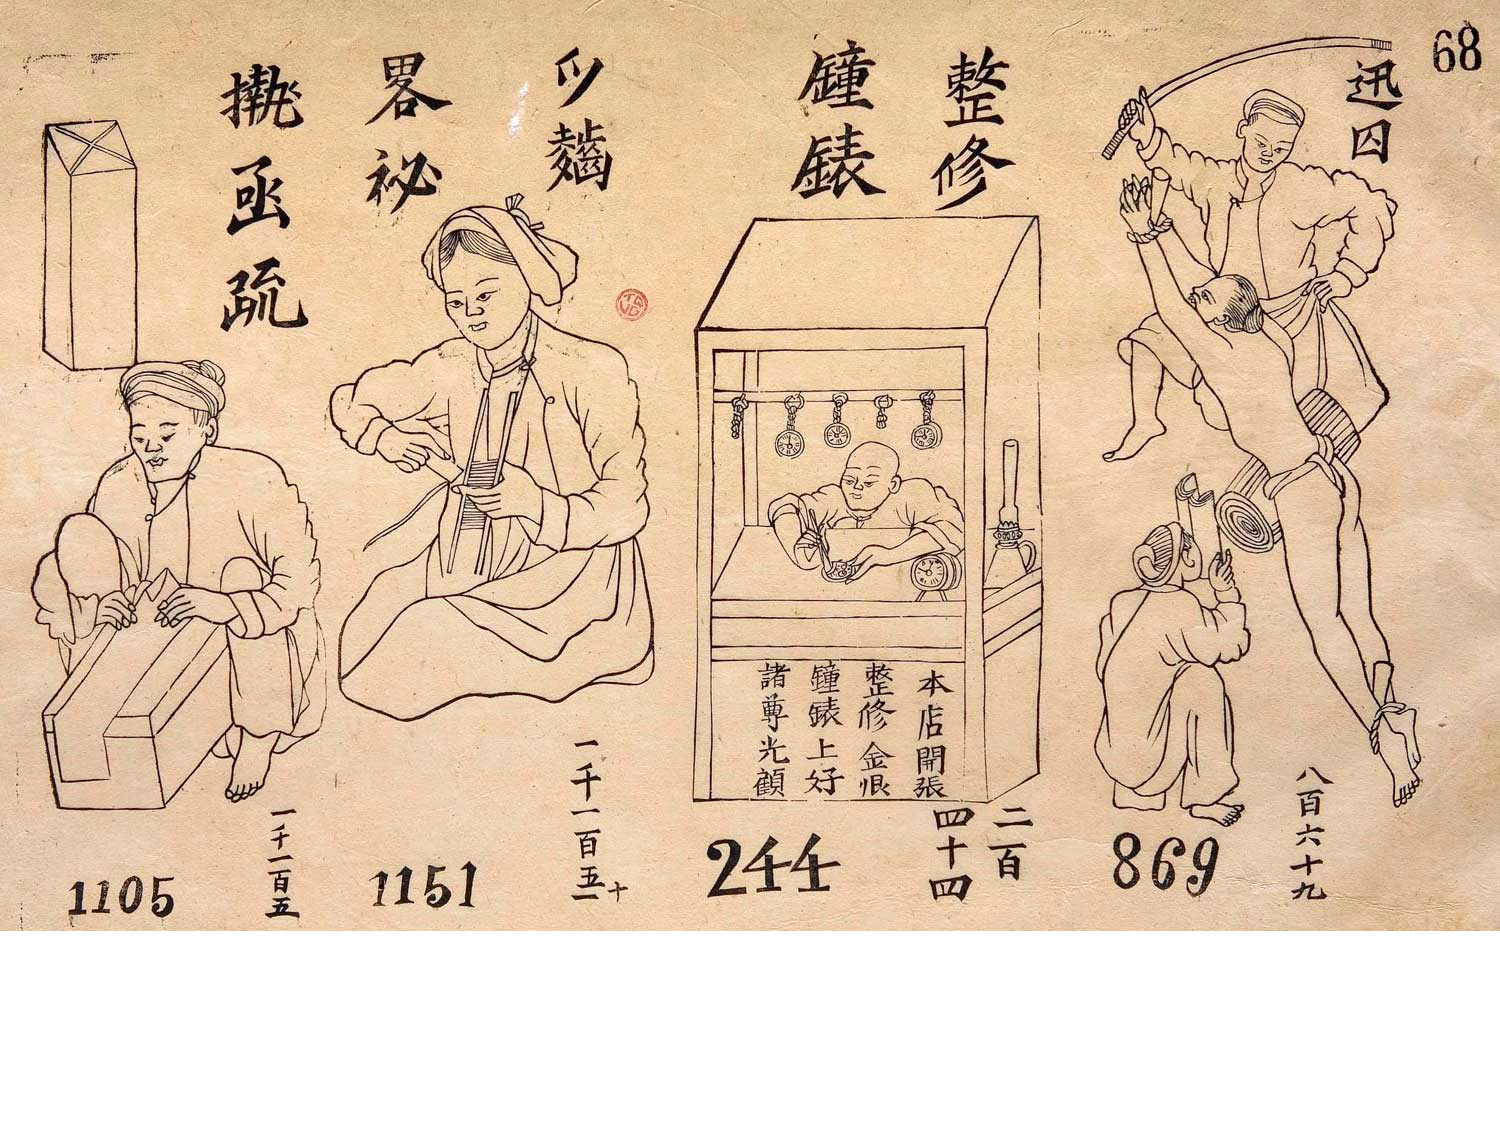 68
迅囚
869
八百六十九
整修
鐘錶
本店開張
整修金恨
鐘錶上好
諸尊光顧
244
二百
四十四
畧祕
1151
一千一百五十一
函疏
1105
一千一百五